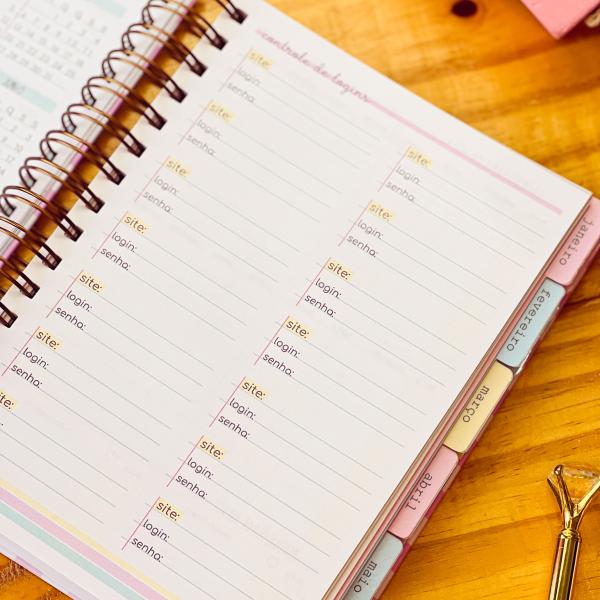 controle de logins
site:
login:
senha:
site:
login:
senha:
site:
login:
senha:
site:
login:
senha:
site:
login:
senha:
site:
login:
senha:
site:
login:
senha:
site:
login:
senha:
site:
login:
senha:
site:
login:
senha:
site:
login:
senha:
site:
login:
senha:
site:
login:
senha:
janeiro
fevereiro
março
abril
maio